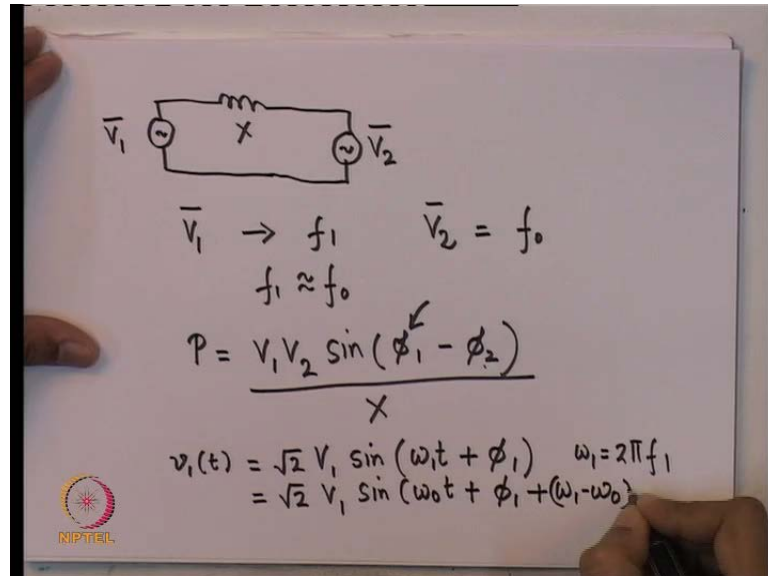 V̄₁ X V̄₂
V̄₁ → f₁ V̄₂ = f₀
f₁ ≈ f₀
P = V₁V₂ sin(ϕ₁ - ϕ₂)
X
v₁(t) = √2 V₁ sin (ω₁t + ϕ₁) ω₁ = 2πf₁
= √2 V₁ sin (ω₀t + ϕ₁ + (ω₁-ω₀)
NPTEL